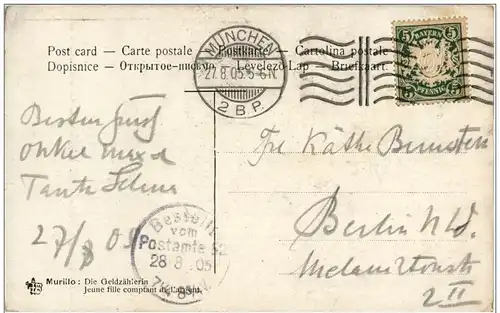 Post card — Carte postale — Postkarte — Cartolina postale
Dopisnice — Открытое письмо — Levelező-Lap — Briefkaart.
MÜNCHEN
27.8.05.5-6N.
2 B.P.
5 BAYERN 5
5 PFENNIG 5
Besten Gruß
Onkel
Tante Selma
27/8 05
Frl Käthe
Berlin N.W.
2 II
Bestellt
vom
Postamte 52
28 8 05
Murillo: Die Geldzählerin
Jeune fille comptant de l'argent.